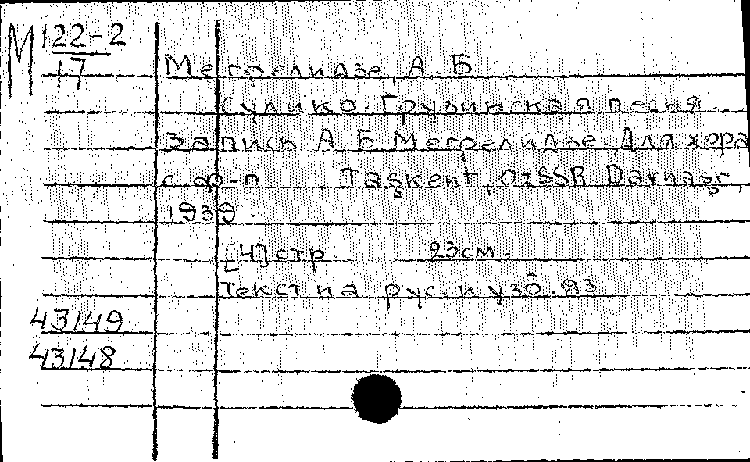 М 122-2
17
Мегрелидзе, А. Б.
Сулико. Грузинская песня.
Запись А. Б. Мегрелидзе. Для хора
с ф-п. Taşkent, OzSSR Davnaşr,
1939.
[4] стр. 23 см.
Текст на рус. и узб. яз.
43149
43148